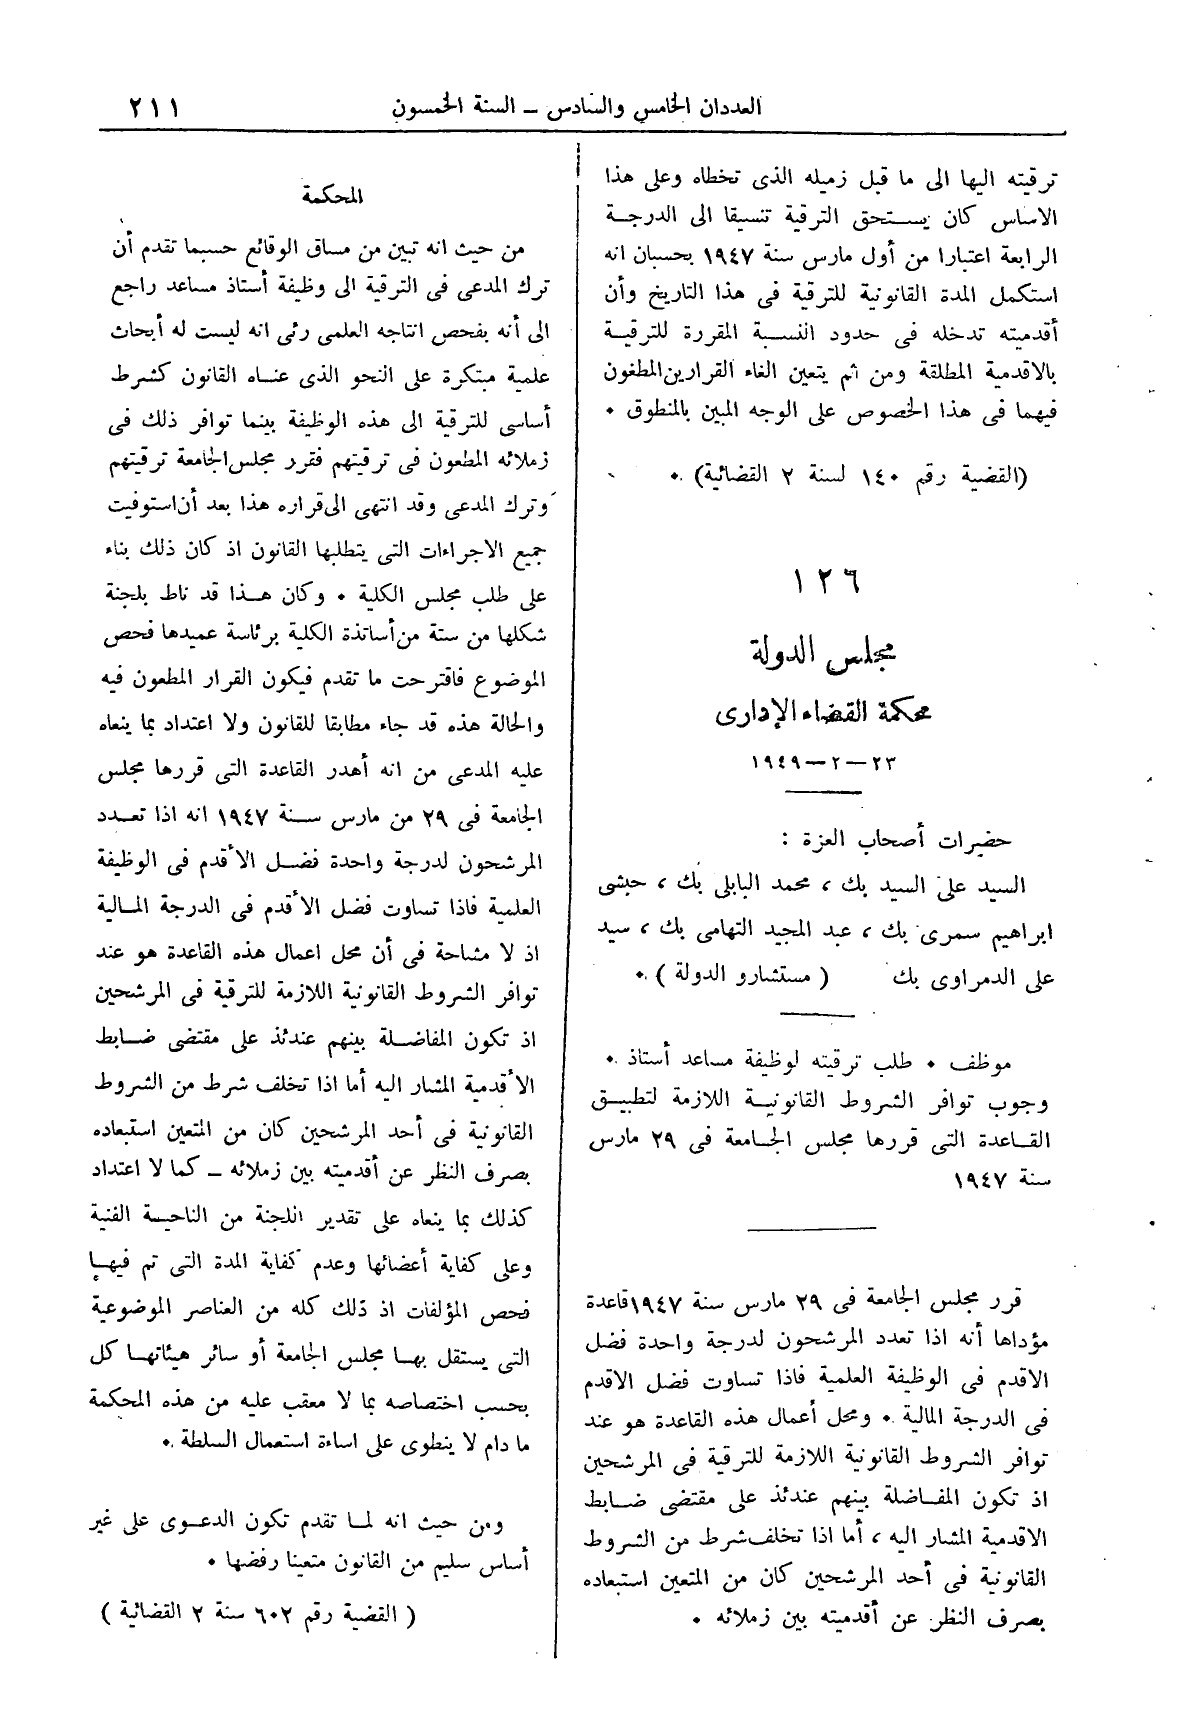 العددان الخامس والسادس – السنة الخمسون
٢١١
ترقيته اليها الى ما قبل زميله الذى تخطاه وعلى هذا
الاساس كان يستحق الترقية تنسيقا الى الدرجة
الرابعة اعتبارا من أول مارس سنة ١٩٤٧ بحسبان انه
استكمل المدة القانونية للترقية فى هذا التاريخ وأن
أقدميته تدخله فى حدود النسبة المقررة للترقية
بالاقدمية المطلقة ومن ثم يتعين الغاء القرارين المطعون
فيهما فى هذا الخصوص على الوجه المبين بالمنطوق •
(القضية رقم ١٤٠ لسنة ٢ القضائية) •
١٢٦
مجلس الدولة
محكمة القضاء الإدارى
٢٣ – ٢ – ١٩٤٩
حضرات أصحاب العزة :
السيد على السيد بك ، محمد البابلى بك ، حبشى
ابراهيم سمرى بك ، عبد المجيد التهامى بك ، سيد
على الدمراوى بك ( مستشارو الدولة ) •
موظف • طلب ترقيته لوظيفة مساعد أستاذ •
وجوب توافر الشروط القانونية اللازمة لتطبيق
القاعدة التى قررها مجلس الجامعة فى ٢٩ مارس
سنة ١٩٤٧
قرر مجلس الجامعة فى ٢٩ مارس سنة ١٩٤٧ قاعدة
مؤداها أنه اذا تعدد المرشحون لدرجة واحدة فضل
الاقدم فى الوظيفة العلمية فاذا تساوت فضل الاقدم
فى الدرجة المالية • ومحل أعمال هذه القاعدة هو عند
توافر الشروط القانونية اللازمة للترقية فى المرشحين
اذ تكون المفاضلة بينهم عندئذ على مقتضى ضابط
الاقدمية المشار اليه ، أما اذا تخلف شرط من الشروط
القانونية فى أحد المرشحين كان من المتعين استبعاده
بصرف النظر عن أقدميته بين زملائه •
المحكمة
من حيث انه تبين من مساق الوقائع حسبما تقدم أن
ترك المدعى فى الترقية الى وظيفة أستاذ مساعد راجع
الى أنه بفحص انتاجه العلمى رئى انه ليست له أبحاث
علمية مبتكرة على النحو الذى عناه القانون كشرط
أساسى للترقية الى هذه الوظيفة بينما توافر ذلك فى
زملائه المطعون فى ترقيتهم فقرر مجلس الجامعة ترقيتهم
وترك المدعى وقد انتهى الى قراره هذا بعد أن استوفيت
جميع الاجراءات التى يتطلبها القانون اذ كان ذلك بناء
على طلب مجلس الكلية • وكان هذا قد ناط بلجنة
شكلها من ستة من أساتذة الكلية برئاسة عميدها فحص
الموضوع فاقترحت ما تقدم فيكون القرار المطعون فيه
والحالة هذه قد جاء مطابقا للقانون ولا اعتداد بما ينعاه
عليه المدعى من انه أهدر القاعدة التى قررها مجلس
الجامعة فى ٢٩ من مارس سنة ١٩٤٧ انه اذا تعدد
المرشحون لدرجة واحدة فضل الأقدم فى الوظيفة
العلمية فاذا تساوت فضل الأقدم فى الدرجة المالية
اذ لا مشاحة فى أن محل اعمال هذه القاعدة هو عند
توافر الشروط القانونية اللازمة للترقية فى المرشحين
اذ تكون المفاضلة بينهم عندئذ على مقتضى ضابط
الأقدمية المشار اليه أما اذا تخلف شرط من الشروط
القانونية فى أحد المرشحين كان من المتعين استبعاده
بصرف النظر عن أقدميته بين زملائه – كما لا اعتداد
كذلك بما ينعاه على تقدير اللجنة من الناحية الفنية
وعلى كفاية أعضائها وعدم كفاية المدة التى تم فيها
فحص المؤلفات اذ ذلك كله من العناصر الموضوعية
التى يستقل بها مجلس الجامعة أو سائر هيئاتها كل
بحسب اختصاصه بما لا معقب عليه من هذه المحكمة
ما دام لا ينطوى على اساءة استعمال السلطة •
ومن حيث انه لما تقدم تكون الدعوى على غير
أساس سليم من القانون متعينا رفضها •
( القضية رقم ٦٠٢ سنة ٢ القضائية )